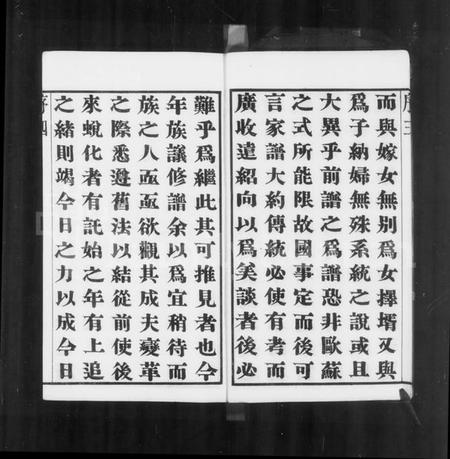 序三
而與嫁女無別爲女擇壻又與
爲子納婦無殊系統之說或且
大異乎前譜之爲譜恐非歐蘇
之式所能限故國事定而後可
言家譜大約傳統必使有考而
廣收遠紹向以爲美談者後必
難乎爲繼此其可推見者也今
年族議修譜余以爲宜稍待而
族之人亟亟欲觀其成夫變革
之際悉遵舊法以結從前使後
來蛻化者有託始之年有上追
之緒則竭今日之力以成今日
序四